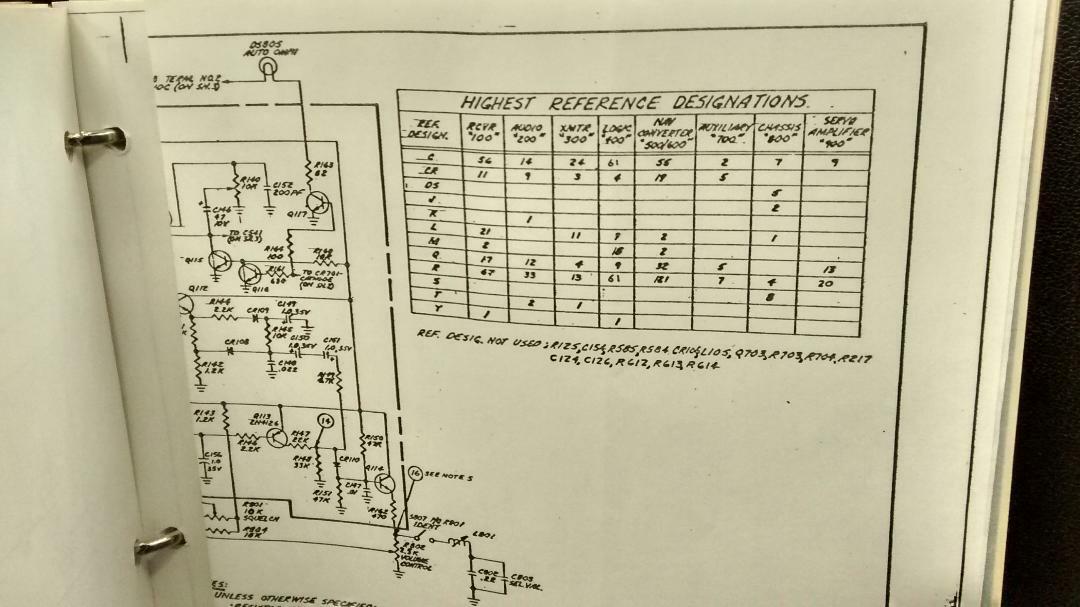 DS805
HIGHEST REFERENCE DESIGNATIONS
REF. DESIGN. RCVR "100" AUDIO "200" XMTR "300" LOGIC "400" NAV CONVERTER "500/600" AUXILIARY "700" CHASSIS "800" SERVO AMPLIFIER "900"
C 56 14 24 61 56 2 7 9
CR 11 9 3 4 19 5
DS 5
J 2
K 1
L 21 11 7 2 1
M 2 18 2
Q 17 12 4 9 32 5 13
R 67 33 13 61 121 7 4 20
S 8
T 2 1
Y 1 1
REF. DESIG. NOT USED: R125, C154, R585, R584 CR106, L105, Q703, R703, R704, R217
C124, C126, R612, R613, R614
TERM. NO.2
(ON SH.3)
R163
82
R140
10K
C152
200PF
Q117
C146
47
10V
TO C541
(ON SH.3)
R164
100
Q115
R161
680
TO CR701
CATHODE
(ON SH.2)
Q116
Q112
R144
2.2K
CR109
C149
1.0,35V
R145
10K
C150
1.0,35V
C151
1.0,35V
CR108
R142
1.2K
C148
.022
R143
1.2K
Q113
2N4126
14
R147
22K
R146
2.2K
R150
47K
R148
33K
CR110
Q114
C156
1.0
35V
R151
47K
C147
.01
16 SEE NOTE 5
R162
470
S807
IDENT
R801
10K
SQUELCH
R804
10K
R802
2.5K
VOLUME
CONTROL
L801
C802
.22
C803
SEL VAL.
ES:
UNLESS OTHERWISE SPECIFIED: